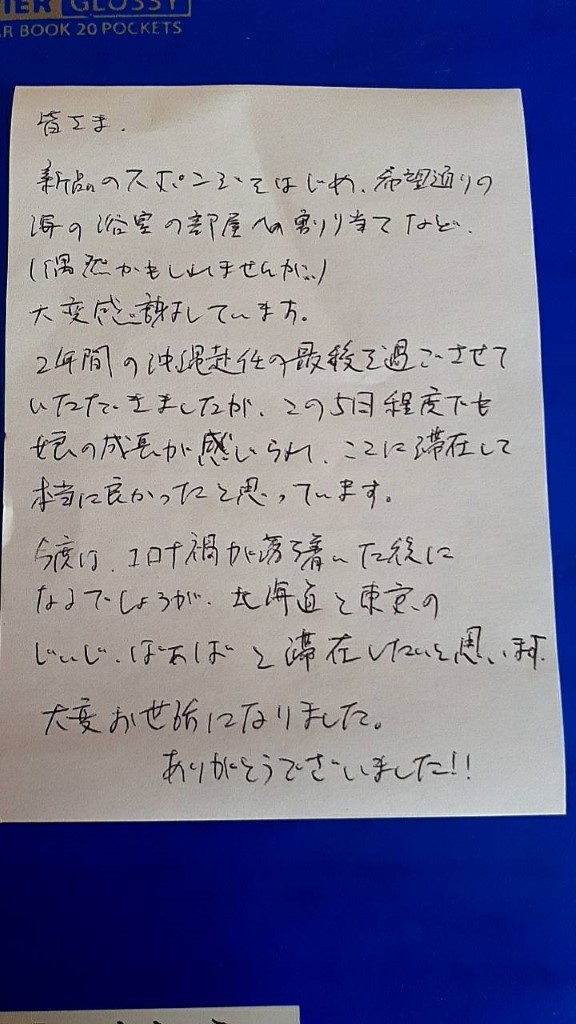 IER GLOSSY
R BOOK 20 POCKETS
皆さま、
新品のスポンジをはじめ、希望通りの
海の浴室の部屋への割り当てなど、
(偶然かもしれませんが…)
大変感謝しています。
2年間の沖縄赴任の最後を過ごさせて
いただきましたが、この5日程度でも
娘の成長が感じられ、ここに滞在して
本当に良かったと思っています。
今度は、コロナ禍が落ち着いた後に
なるでしょうが、北海道と東京の
じぃじ、ばあばと滞在したいと思います。
大変お世話になりました。
ありがとうございました!!